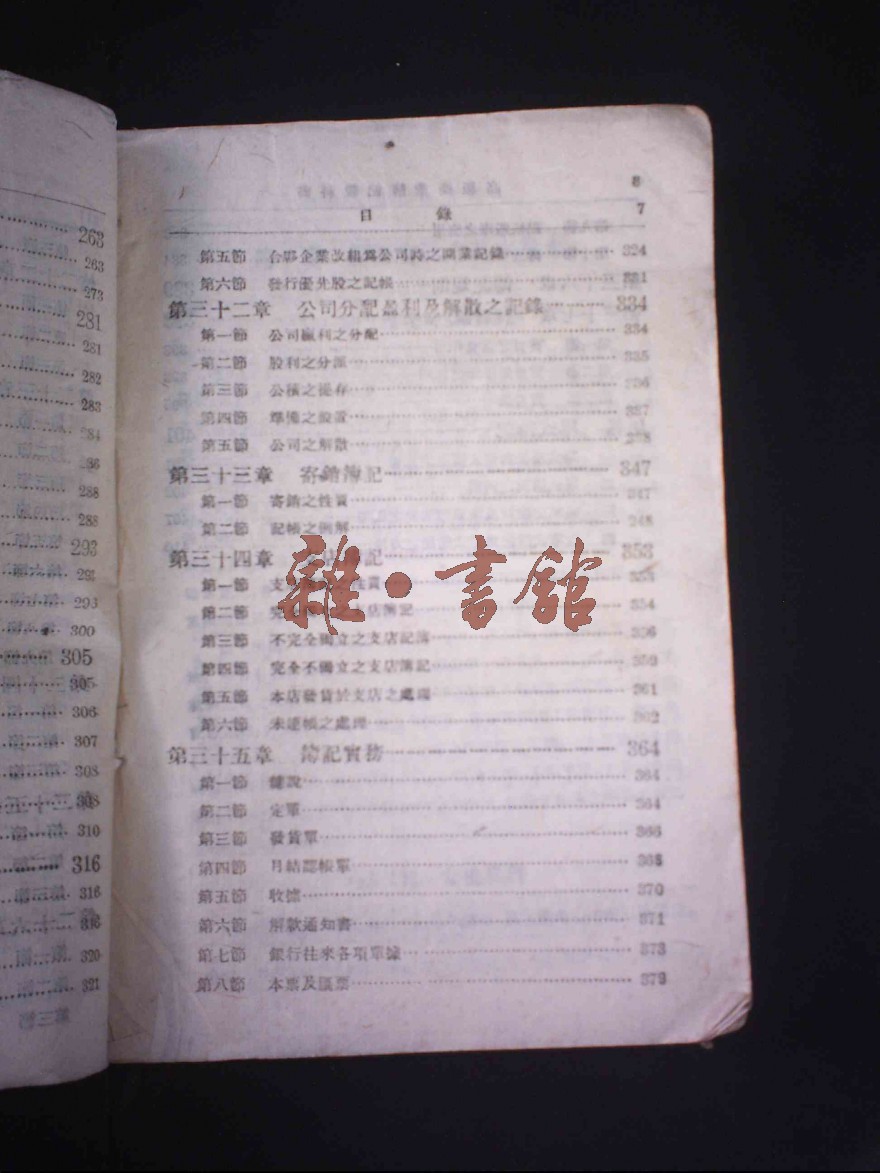 263
263
273
281
281
282
283
284
286
288
288
293
293
293
300
305
305
306
307
308
308
310
316
316
316
320
321
8
目錄 7
第五節 合夥企業改組爲公司時之開業記錄 324
第六節 發行優先股之記帳 331
第三十二章 公司分配盈利及解散之記錄 334
第一節 公司贏利之分配 334
第二節 股利之分派 335
第三節 公積之提存 336
第四節 準備之設置 337
第五節 公司之解散 338
第三十三章 寄銷簿記 347
第一節 寄銷之性質 347
第二節 記帳之例解 348
第三十四章 支店簿記 353
第一節 支 性質 353
第二節 完 支店簿記 354
第三節 不完全獨立之支店記簿 356
第四節 完全不獨立之支店簿記 359
第五節 本店發貨於支店之處理 361
第六節 未達帳之處理 362
第三十五章 簿記實務 364
第一節 總說 364
第二節 定單 364
第三節 發貨單 366
第四節 月結認帳單 368
第五節 收據 370
第六節 解款通知書 371
第七節 銀行往來各項單據 373
第八節 本票及匯票 379
雜·書館